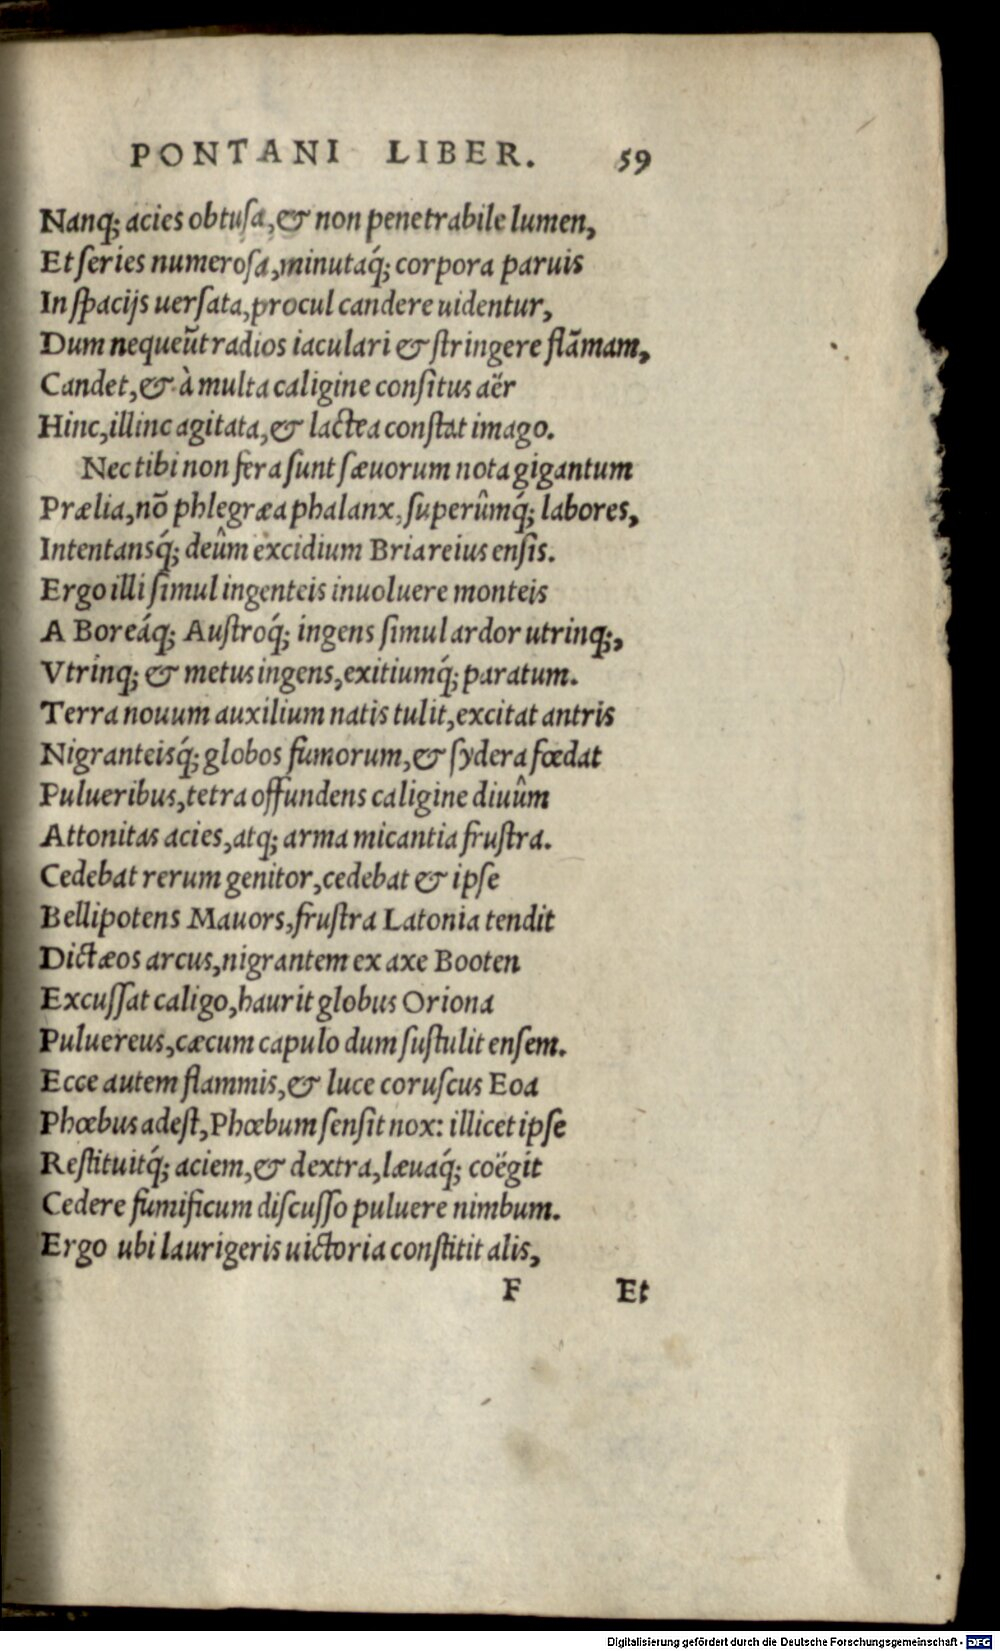 PONTANI LIBER. 59
Nanq; acies obtuſa, & non penetrabile lumen,
Et ſeries numeroſa, minutaq́; corpora paruis
In ſpacijs uerſata, procul candere uidentur,
Dum nequeũt radios iaculari & ſtringere flãmam,
Candet, & à multa caligine conſitus aër
Hinc, illinc agitata, & lactea conſtat imago.
Nec tibi non fera ſunt ſæuorum nota gigantum
Prælia, nõ phlegræa phalanx, ſuperûmq́; labores,
Intentansq́; deûm excidium Briareius enſis.
Ergo illi ſimul ingenteis inuoluere monteis
A Boreáq; Auſtroq́; ingens ſimul ardor utrinq;,
Vtrinq; & metus ingens, exitiumq́; paratum.
Terra nouum auxilium natis tulit, excitat antris
Nigranteisq́; globos fumorum, & ſydera fœdat
Pulueribus, tetra offundens caligine diuûm
Attonitas acies, atq; arma micantia fruſtra.
Cedebat rerum genitor, cedebat & ipſe
Bellipotens Mauors, fruſtra Latonia tendit
Dictæos arcus, nigrantem ex axe Booten
Excuſſat caligo, haurit globus Oriona
Puluereus, cæcum capulo dum ſuſtulit enſem.
Ecce autem flammis, & luce coruſcus Eoa
Phœbus adeſt, Phœbum ſenſit nox: illicet ipſe
Reſtituitq́; aciem, & dextra, læuaq́; coëgit
Cedere fumificum diſcuſſo puluere nimbum.
Ergo ubi laurigeris uictoria conſtitit alis,
F Et
Digitalisierung gefördert durch die Deutsche Forschungsgemeinschaft - DFG